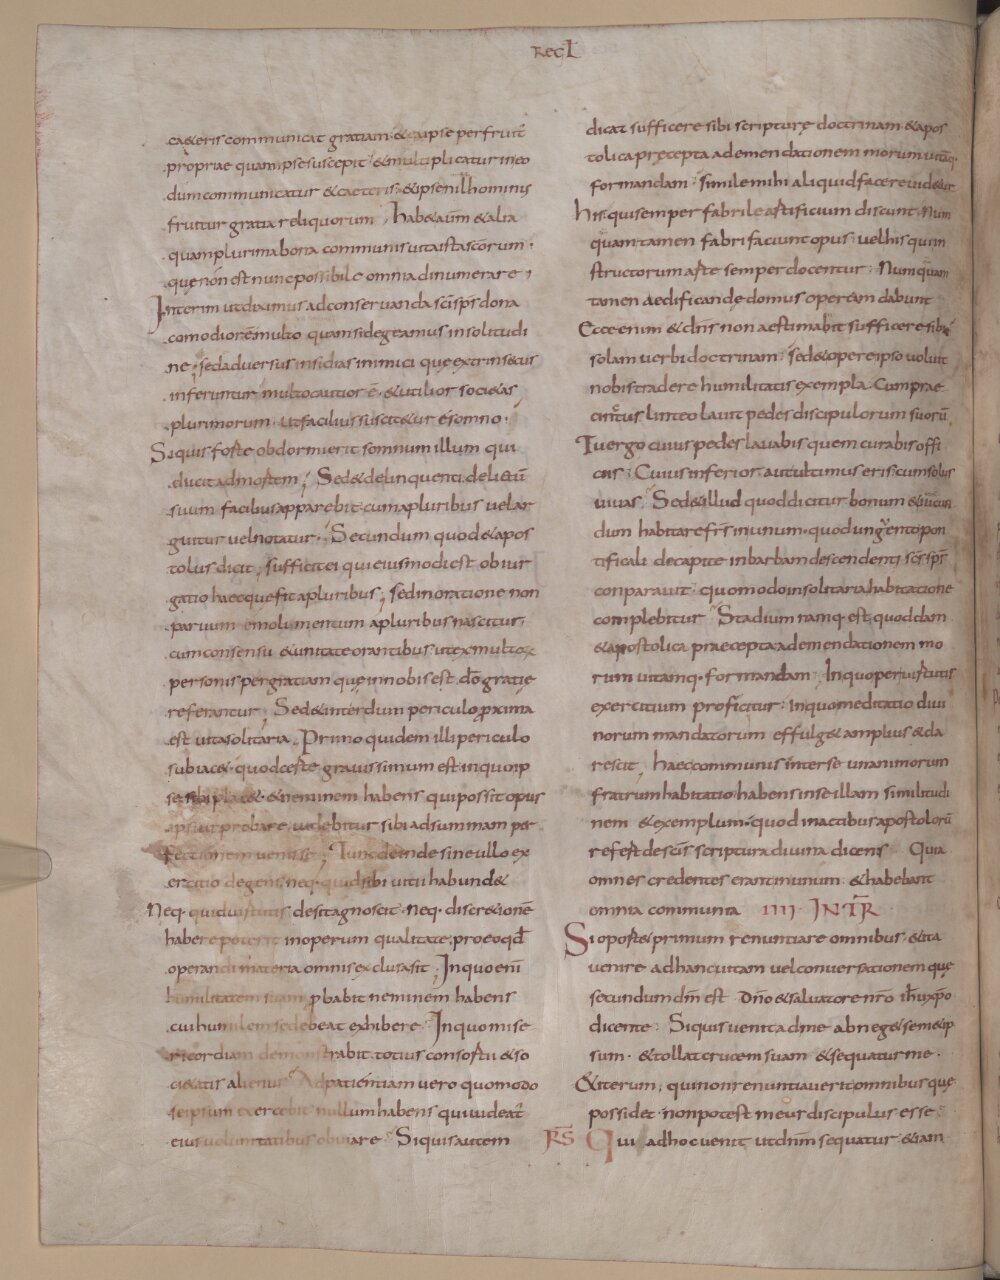 REGL
ca&eris communicat gratiam · & eaipse perfruit̅
proprae quam ipse suscepit · & multiplicatur in eo
dum communicatur & caeteris · & ipse nihilhominus
fruitur gratia reliquorum ; hab& aut̅ & alia
quam plurima bona communis uita ista sc̅orum ·
que non est nunc possibile omnia dinumerare ;
Interim ut diximus ad conseruanda sc̅i sp̅s dona
comodior e̅ multo quam si degeamus in solitudi
ne ; sed aduersus insidias inimici que extrinsecus
inferuntur multo cautior e̅ · & utilior soci&as
plurimorum · ut facilius suscit&ur e somno ;
Si quis forte obdormierit somnum illum qui
ducit ad mortem ; Sed & delinquenti delictu̅
suum facilius apparebit · cum a pluribus uel ar
guitur uel notatur · Secundum quod & apos
tolus dicit ; sufficit ei qui eiusmodi est obiur
gatio haec que fit a pluribus ; sed in oratione non
paruum emolumentum a pluribus nascitur ;
cum consensu & unitate orantibus · ut ex multoR
personis per gratiam que in nobis est do̅ gratie
referantur ; Sed & interdum periculo proxima
est uita solitaria . Primo quidem illi periculo
subiac& · quod certe grauissimum est · in quo ip
se sibi plac& · & neminem habens qui possit opus
ipsius probare · uidebitur sibi ad summam per
fectionem uenisse ; Tunc deinde sine ullo ex
ercitio degens neq· quid sibi uitii habund&
Neq· quid uirtutis desit agnoscit · neq· discretione̅
habere poterit in operum qualitate · pro eo qd̅
operandi materia omnis exclusa sit ; In quo eni̅
humilitatem suam p̱babit neminem habens
cui humilem se debeat exhibere · In quo mise
ricordiam demonstrabit totius consortii & so
ci&atis alienus · Ad patientiam uero quomodo
seipsum exercebit · nullum habens qui uideat̅
eius uoluntatibus obuiare · Si quis autem
dicat sufficere sibi scripturę doctrinam & apos
tolica pręcepta ad emendationem morum uita̅q·
formandam ; simile mihi aliquid facere uid&ur
his qui semper fabrile artificium discunt · Num
quam tamen fabri faciunt opus · uel his qui in
structorum arte semper docentur ; Numquam
tamen aedificandę domus operam dabunt
Ecce enim & dn̅s non aestimabit sufficere sibi
solam uerbi doctrinam ; sed & opere ipso uoluit
nobis tradere humilitatis exempla . Cum prae
cinctus linteo lauit pedes discipulorum suoru̅
Tu ergo cuius pedes lauabis quem curabis offi
ciis ; Cuius inferior · aut ultimus eris cum solus
uiuas ; Sed & illud quod dicitur bonum & iucun
dum habitare fr̅s in unum · quod ungento pon
tificali de capite in barbam descendenti sc̅s sp̅s
conparauit · quomodo in solitaria habitatione
complebitur ; Stadium namq· est quoddam
& apostolica praecepta ad emendationem mo
rum uitamq· formandam ; In quo per uirtutis
exercitium proficitur ; in quo meditatio diui
norum mandatorum effulg& amplius & cla
rescit ; haec communis inter se unanimorum
fratrum habitatio · habens in se illam similitudi
nem & exemplum · quod in actibus apostoloru̅
refert de sc̅is scriptura diuina dicens Quia
omnes credentes erant in unum · & habebant
omnia communia IIII INTR̅
Si oport& primum renuntiare omnibus · & ita
uenire ad hanc uitam uel conuersationem quę
secundum dm̅ est · Dn̅o & saluatore nr̅o ih̅u xp̅o
dicente ; Si quis uenit ad me abneg& sem&ip
sum · & tollat crucem suam & sequatur me ·
& iterum ; qui non renuntiauerit omnibus quę
possidet · non potest meus discipulus esse ·
RS̅ Qui ad hoc uenit ut dn̅m sequatur · & iam